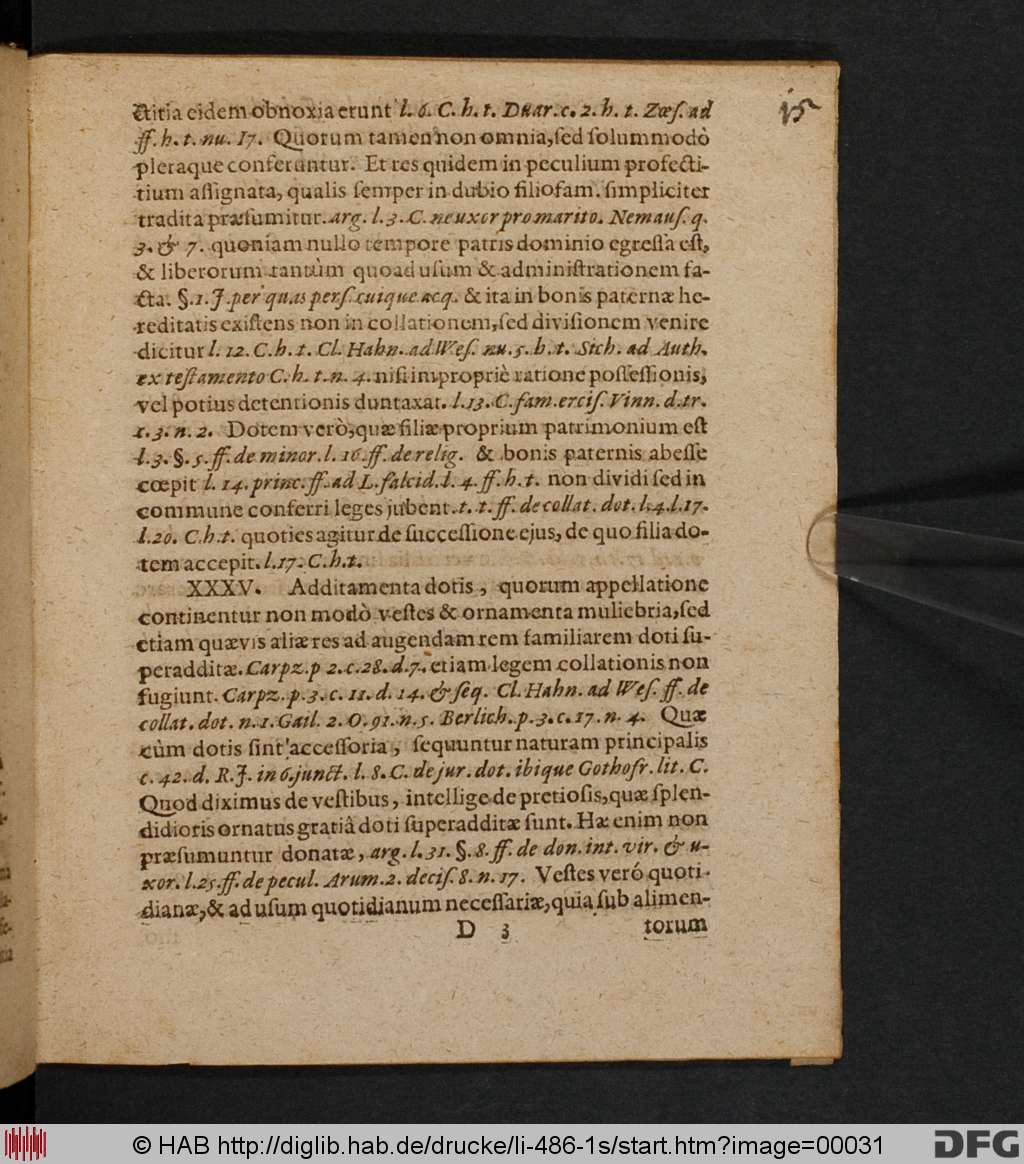 15
ctitia eidem obnoxia erunt l. 6. C. h. t. Duar. c. 2. h. t. Zœſ. ad
ff. h. t. nu. 17. Quorum tamen non omnia, ſed ſolummodò
pleraque conferuntur. Et res quidem in peculium profecti-
tium aſſignata, qualis ſemper in dubio filiofam. ſimpliciter
tradita præſumitur. arg. l. 3. C. ne uxor pro marito. Nemauſ. q.
3. & 7. quoniam nullo tempore patris dominio egreſſa eſt,
& liberorum tantùm quoad uſum & adminiſtrationem fa-
cta. §. 1. J. per quas perſ. cuique acq. & ita in bonis paternæ he-
reditatis exiſtens non in collationem, ſed diviſionem venire
dicitur l. 12. C. h. t. Cl. Hahn. ad Weſ. nu. 5. h. t. Stch. ad Auth.
ex teſtamento C. h. t. n. 4. niſi impropriè ratione poſſeſſionis,
vel potius detentionis duntaxat. l. 13. C. fam. erciſ. Vinn. d. tr.
1. 3. n. 2. Dotem verò, quæ filiæ proprium patrimonium eſt
l. 3. §. 5. ff. de minor. l. 16. ff. de relig. & bonis paternis abeſſe
cœpit l. 14. princ. ff. ad L. falcid. l. 4. ff. h. t. non dividi ſed in
commune conferri leges jubent. t. t. ff. de collat. dot. l. 4. l. 17.
l. 20. C. h. t. quoties agitur de ſucceſſione ejus, de quo filia do-
tem accepit. l. 17. C. h. t.
XXXV. Additamenta dotis, quorum appellatione
continentur non modò veſtes & ornamenta muliebria, ſed
etiam quævis aliæ res ad augendam rem familiarem doti ſu-
peradditæ. Carpz. p 2. c. 28. d. 7. etiam legem collationis non
fugiunt. Carpz. p. 3. c. 11. d. 14. & ſeq. Cl. Hahn. ad Weſ. ff. de
collat. dot. n. 1. Gail. 2. O. 91. n. 5. Berlich. p. 3. c. 17. n. 4. Quæ
cùm dotis ſint acceſſoria, ſequuntur naturam principalis
c. 42. d. R. J. in 6. junct. l. 8. C. de jur. dot. ibique Gothofr. lit. C.
Quod diximus de veſtibus, intellige de pretioſis, quæ ſplen-
didioris ornatus gratiâ doti ſuperadditæ ſunt. Hæ enim non
præſumuntur donatæ, arg. l. 31. §. 8. ff. de don. int. vir. & u-
xor. l. 25. ff. de pecul. Arum. 2. deciſ. 8. n. 17. Veſtes veró quoti-
dianæ, & ad uſum quotidianum neceſſariæ, quia ſub alimen-
D 3 torum
© HAB http://diglib.hab.de/drucke/li-486-1s/start.htm?image=00031 DFG